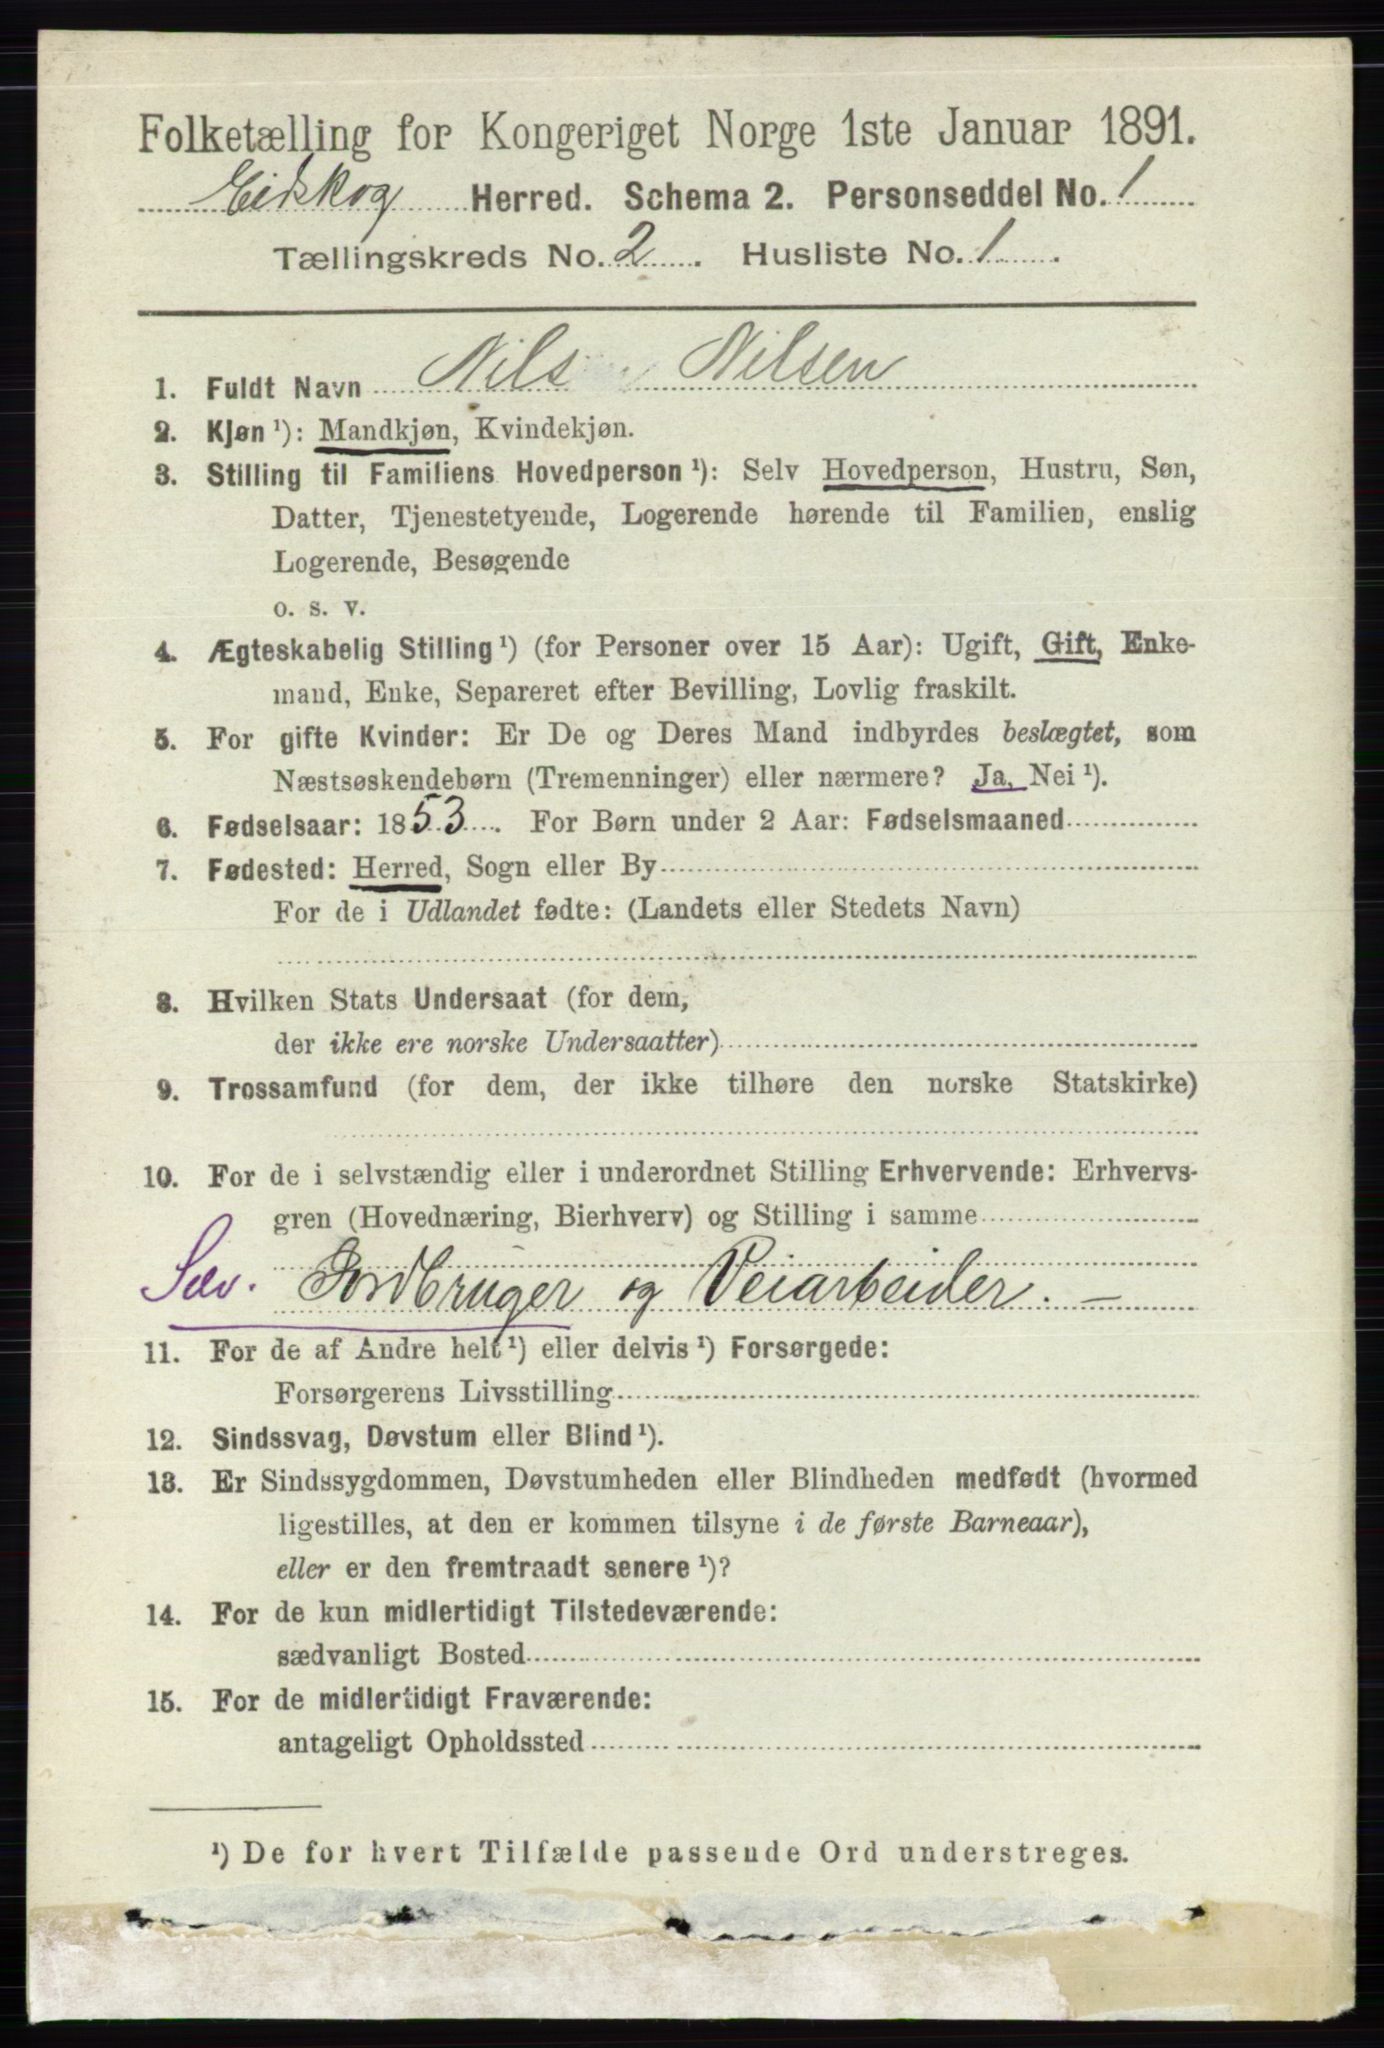 Folketælling for Kongeriget Norge 1ste Januar 1891.
Eidskog Herred. Schema 2. Personseddel No. 1
Tællingskreds No. 2. Husliste No. 1.
1. Fuldt Navn Nils Nilsen
2. Kjøn ¹): Mandkjøn, Kvindekjøn.
3. Stilling til Familiens Hovedperson ¹): Selv Hovedperson, Hustru, Søn,
Datter, Tjenestetyende, Logerende hørende til Familien, enslig
Logerende, Besøgende
o. s. v.
4. Ægteskabelig Stilling ¹) (for Personer over 15 Aar): Ugift, Gift, Enke-
mand, Enke, Separeret efter Bevilling, Lovlig fraskilt.
5. For gifte Kvinder: Er De og Deres Mand indbyrdes beslægtet, som
Næstsøskendebørn (Tremenninger) eller nærmere? Ja, Nei ¹).
6. Fødselsaar: 1853. For Børn under 2 Aar: Fødselsmaaned
7. Fødested: Herred, Sogn eller By
For de i Udlandet fødte: (Landets eller Stedets Navn)
8. Hvilken Stats Undersaat (for dem,
der ikke ere norske Undersaatter)
9. Trossamfund (for dem, der ikke tilhøre den norske Statskirke)
10. For de i selvstændig eller i underordnet Stilling Erhvervende: Erhvervs-
gren (Hovednæring, Bierhverv) og Stilling i samme
Selv. Jordbruger og Veiarbeider. –
11. For de af Andre helt ¹) eller delvis ¹) Forsørgede:
Forsørgerens Livsstilling
12. Sindssvag, Døvstum eller Blind ¹).
13. Er Sindssygdommen, Døvstumheden eller Blindheden medfødt (hvormed
ligestilles, at den er kommen tilsyne i de første Barneaar),
eller er den fremtraadt senere ¹)?
14. For de kun midlertidigt Tilstedeværende:
sædvanligt Bosted
15. For de midlertidigt Fraværende:
antageligt Opholdssted
¹) De for hvert Tilfælde passende Ord understreges.